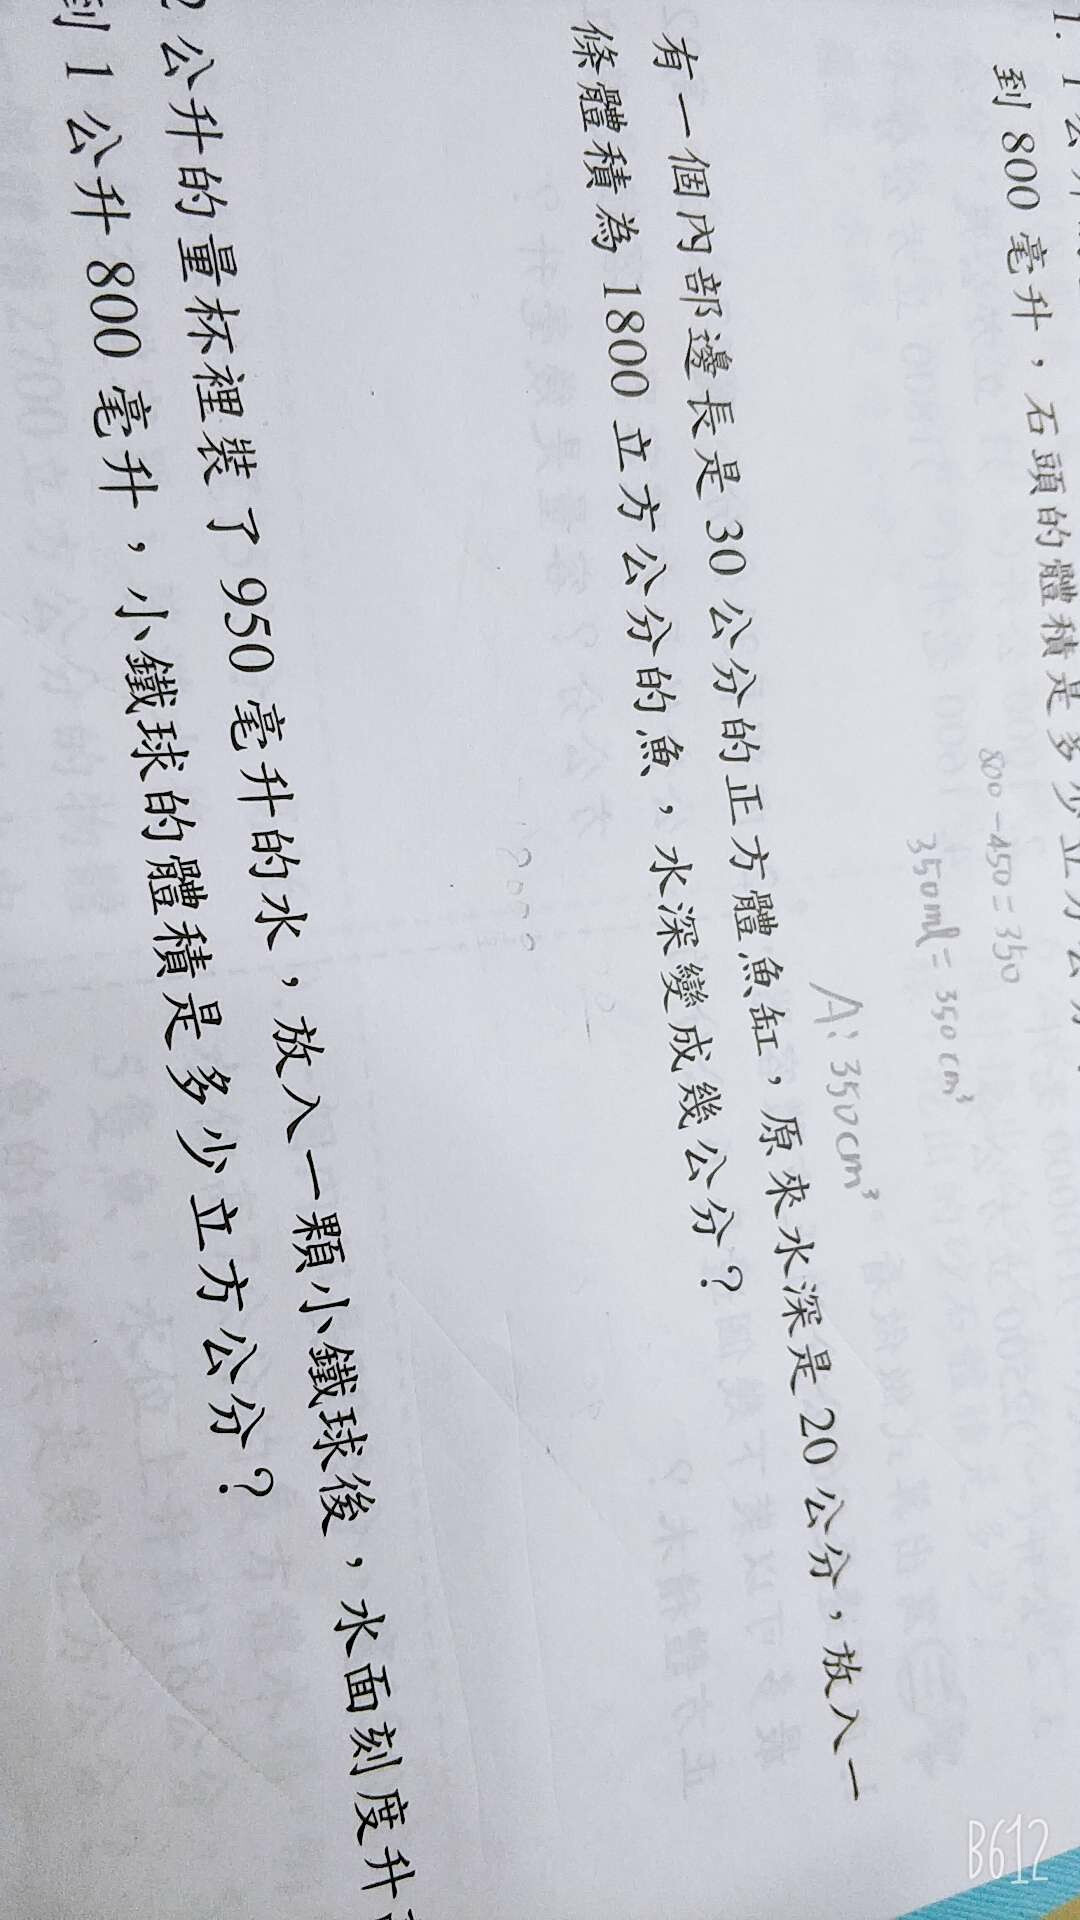 1. 1公升
到 800 毫升，石頭的體積是多少立方公分
800-450=350
350ml=350cm³
A:350cm³
有一個內部邊長是 30 公分的正方體魚缸，原來水深是 20 公分，放入一
條體積為 1800 立方公分的魚，水深變成幾公分？
2 公升的量杯裡裝了 950 毫升的水，放入一顆小鐵球後，水面刻度升
到 1 公升 800 毫升，小鐵球的體積是多少立方公分？
B612